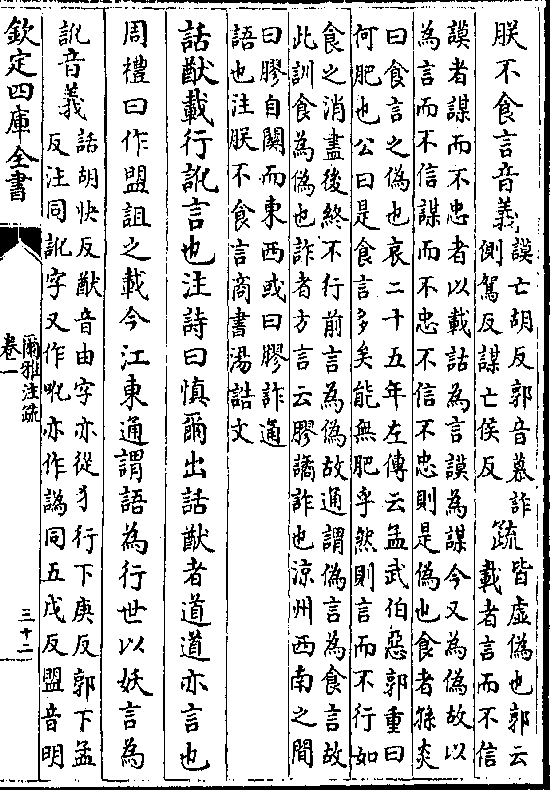 朕不食言音義謨亡胡反郭音慕詐疏皆虛偽也郭云
側駕反謀亡侯反載者言而不信
謨者謀而不忠者以載話為言謨為謀今又為偽故以
為言而不信謀而不忠不信不忠則是偽也食者孫炎
曰食言之偽也哀二十五年左傳云孟武伯惡郭重曰
何肥也公曰是食言多矣能無肥乎然則言而不行如
食之消盡後終不行前言為偽故通謂偽言為食言故
此訓食為偽也詐者方言云膠譎詐也涼州西南之間
曰膠自關而東西或曰膠詐通
語也注朕不食言商書湯誥文
話猷載行訛言也注詩曰慎爾出話猷者道道亦言也
周禮曰作盟詛之載今江東通謂語為行世以妖言為
訛音義話胡快反猷音由字亦從犭行下庚反郭下孟
反注同訛字又作吪亦作譌同五戈反盟音明
欽定四庫全書
爾雅注疏
卷一
三十二